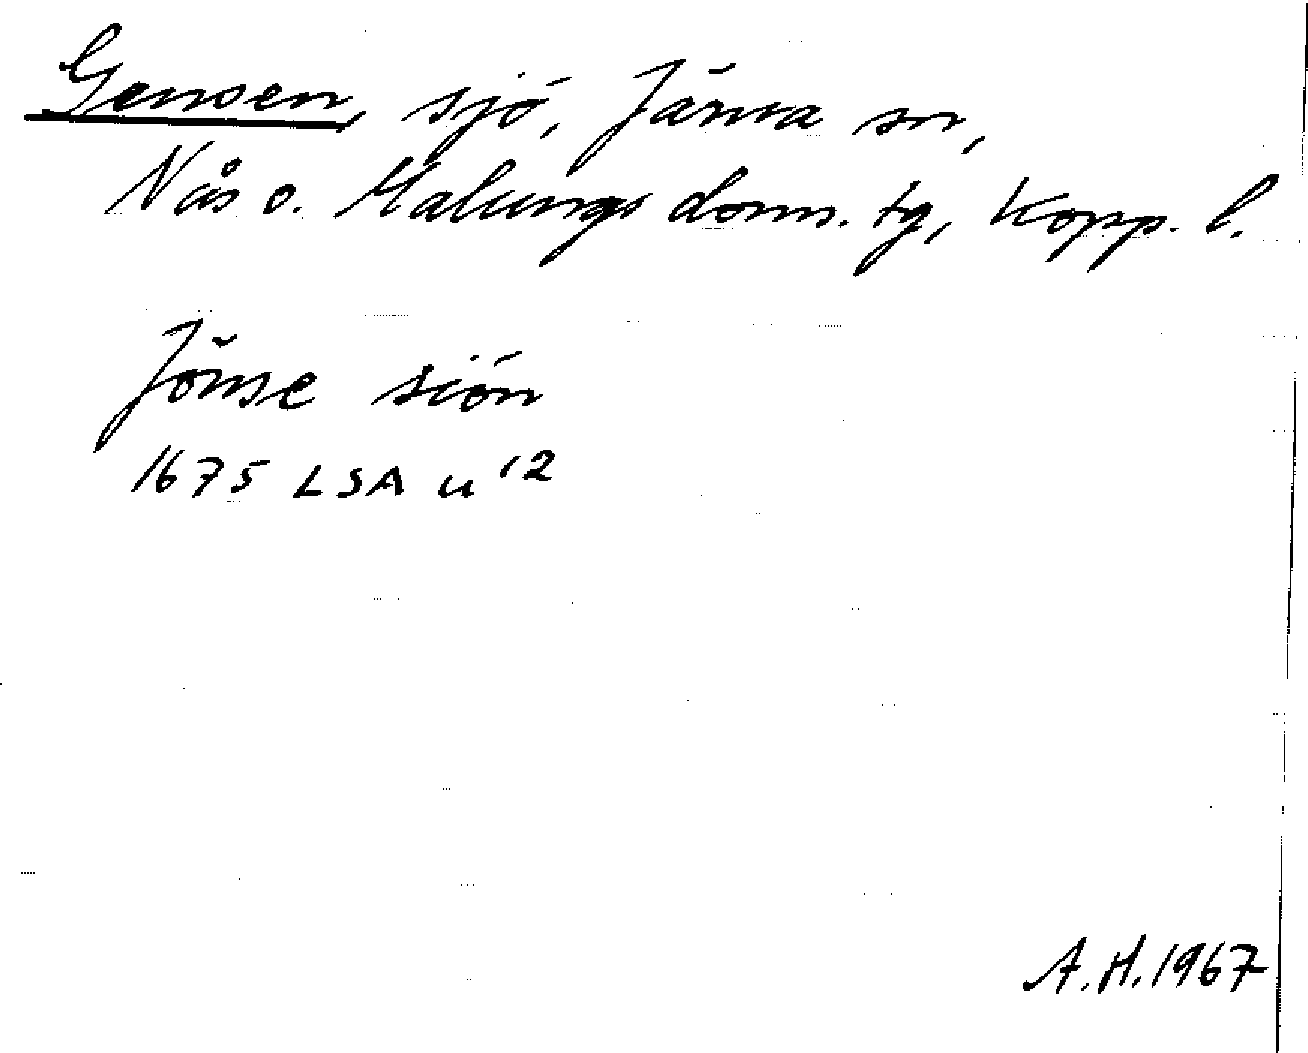 Gensen, sjö, Järna sn,
Nås o. Malungs doms. tg, Kopp. l.
Jönse siön
1675 LSA u 12
A.H.1967